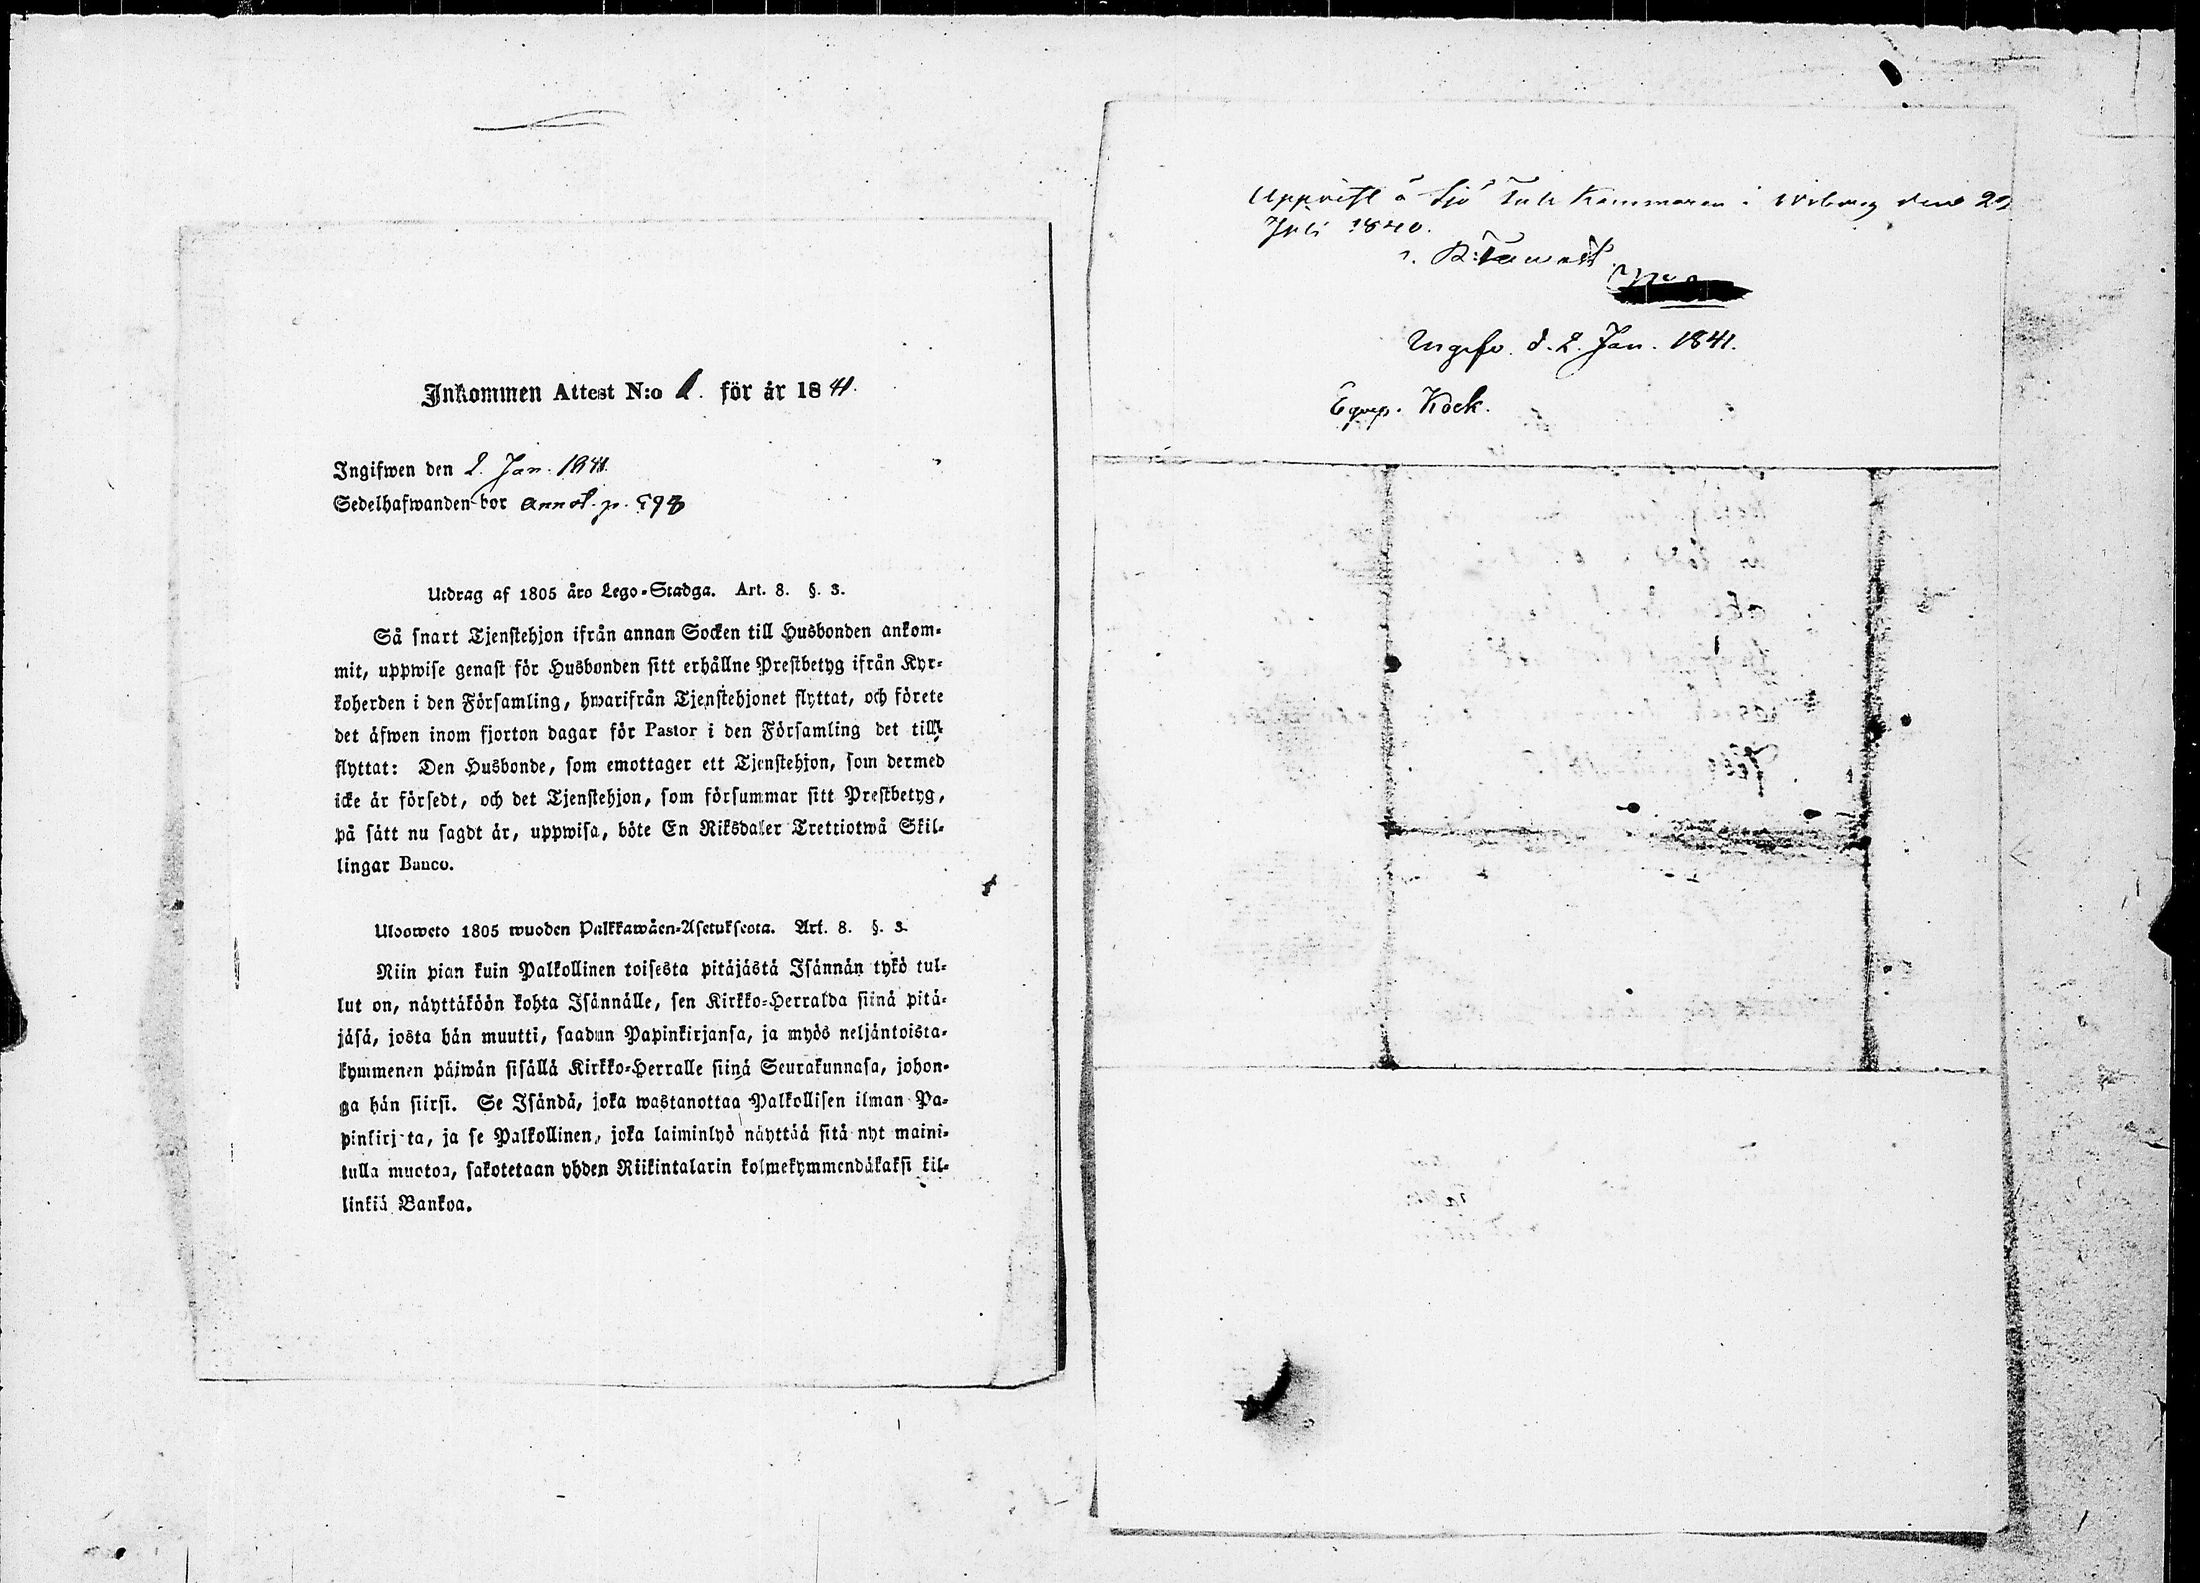 Inkommen Attest N:o 1. för år 1841.
Ingifwen den 2. Jan. 1841.
Sedelhafwanden bor annot. p. 593
Utdrag af 1805 års Lego-Stadga. Art. 8. §. 3.
Så snart Tjenstehjon ifrån annan Socken till Husbonden ankom-
mit, uppwise genast för Husbonden sitt erhållne Prestbetyg ifrån Kyr-
koherden i den Församling, hwarifrån Tjenstehjonet flyttat, och förete
det äfwen inom fjorton dagar för Pastor i den Församling det till-
flyttat: Den Husbonde, som emottager ett Tjenstehjon, som dermed
icke är försedt, och det Tjenstehjon, som försummar sitt Prestbetyg,
på sätt nu sagdt är, uppwisa, böte En Riksdaler Trettiotwå Skil-
lingar Banco.
Ulosweto 1805 wuoden Palkkawäen-Asetuksesta. Art. 8. §. 3.
Niin pian kuin Palkollinen toisesta pitäjästä Isännän tykö tul-
lut on, näyttäköön kohta Isännälle, sen Kirkko-Herralda siinä pitä-
jäsä, josta hän muutti, saadun Papinkirjansa, ja myös neljäntoista-
kymmenen päiwän sisällä Kirkko-Herralle siinä Seurakunnasa, johon-
ga hän siirsi. Se Isändä, joka wastanottaa Palkollisen ilman Pa-
pinkirjata, ja se Palkollinen, joka laiminlyö näyttää sitä nyt maini-
tulla muotoa, sakotetaan yhden Riikintalarin kolmekymmendäkaksi kil-
linkiä Bankoa.
Uppvist å Sjö Tull Kammaren i Wiborg den 29
Juli 1840.
Ingifv. d. 2. Jan. 1841.
Kock.